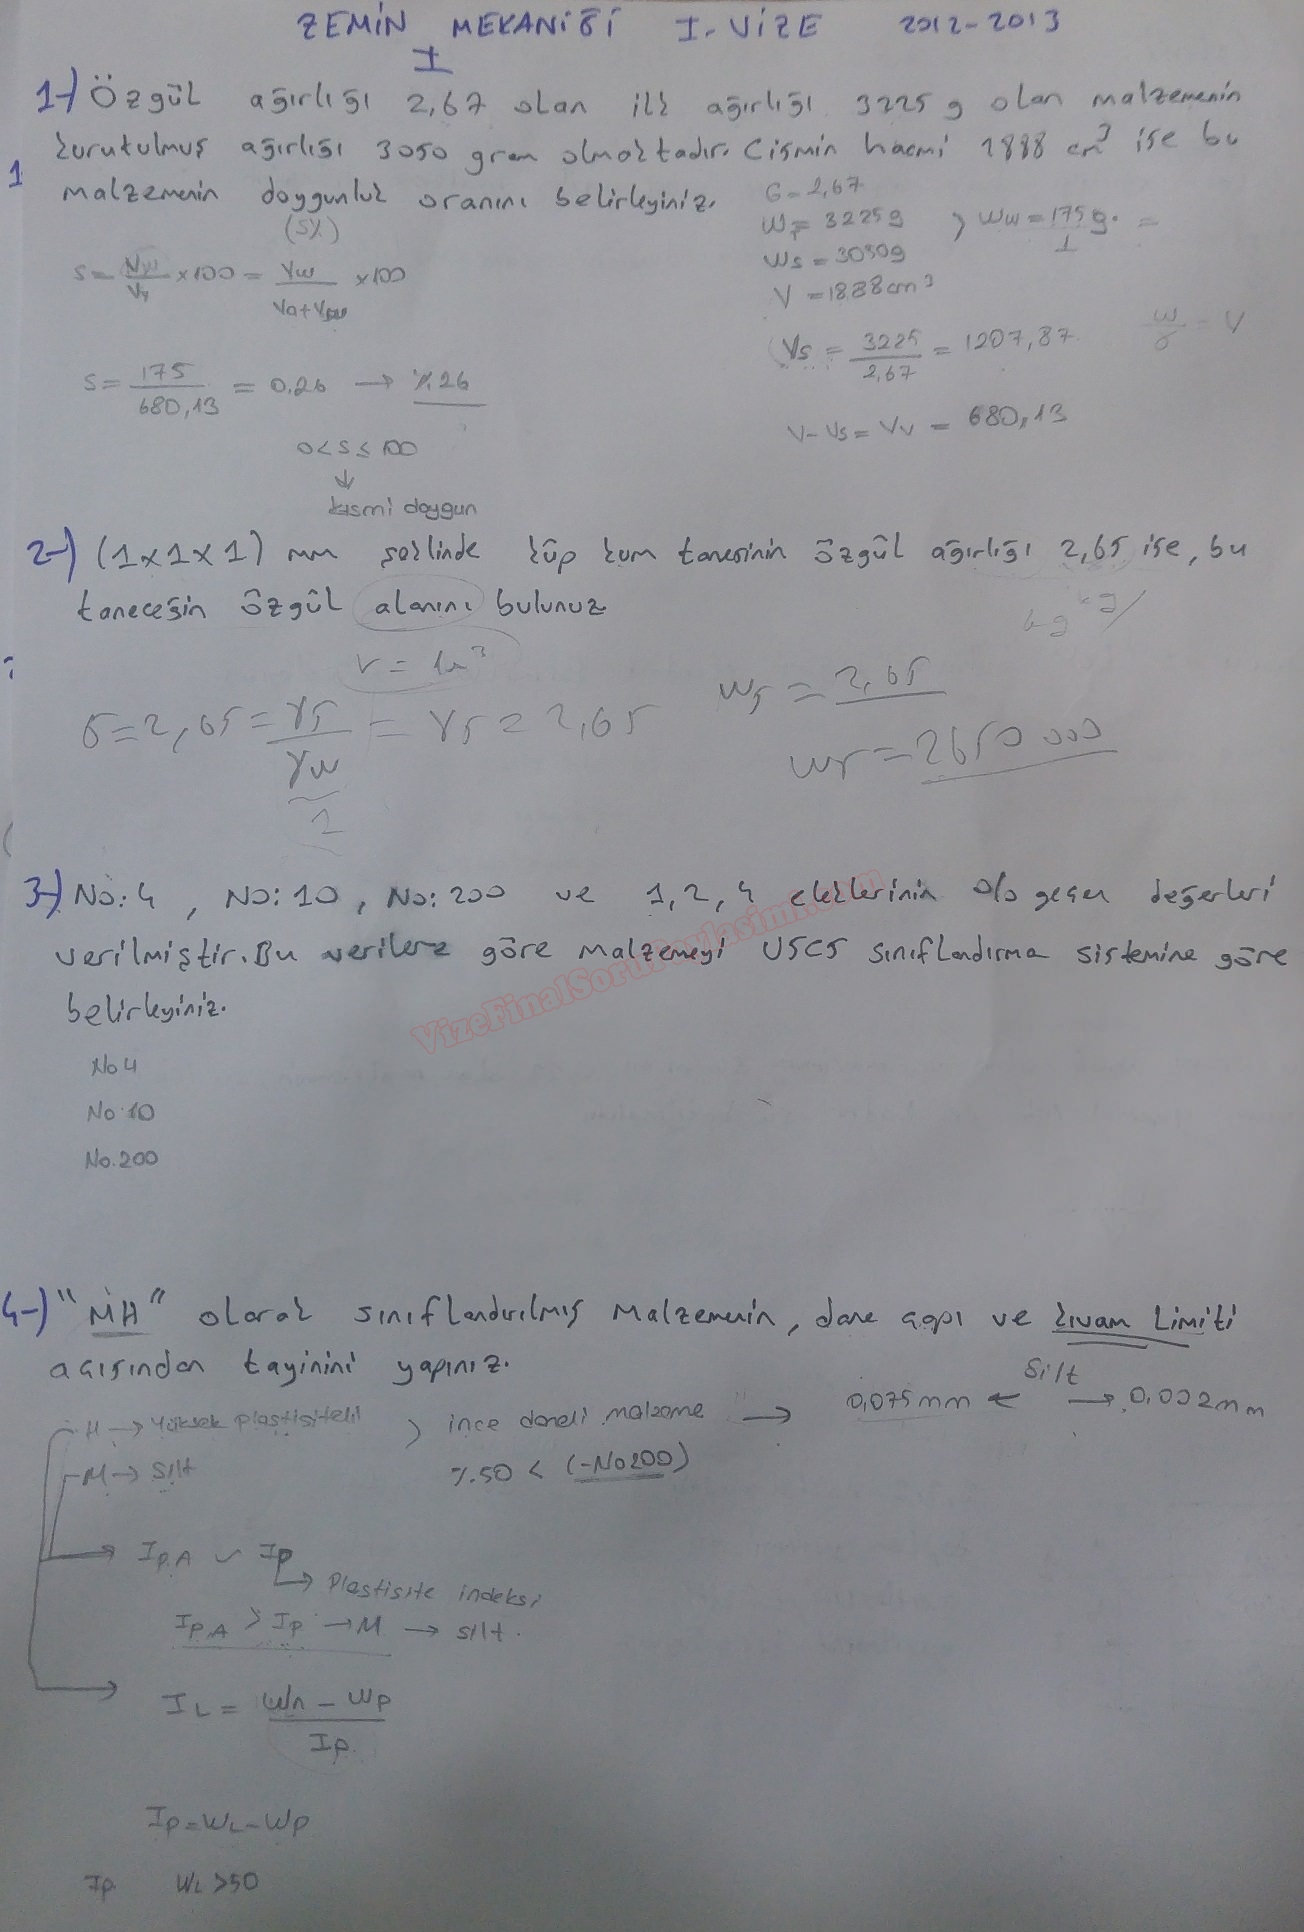 ZEMİN MEKANİĞİ I. VİZE 2012-2013
I
1-) Özgül ağırlığı 2,67 olan ilk ağırlığı 3225 g olan malzemenin
kurutulmuş ağırlığı 3050 gram olmaktadır. Cismin hacmi 1888 cm³ ise bu
1
malzemenin doygunluk oranını belirleyiniz.
(S%)
G = 2,67
W = 3225g } Ww = 175g. =
1
Ws = 3050g
V = 1888cm³
S = Vw/Vv x100 = Vw/Va+Vw x100
Vs = 3225/2,67 = 1207,87
w/γ = V
S = 175/680,13 = 0,26 → %26
V-Vs = Vv = 680,13
0<S≤100
↓
kısmi doygun
2-) (1x1x1) mm şeklinde küp kum tanesinin özgül ağırlığı 2,65 ise, bu
taneceğin özgül alanını bulunuz
V = 1m³
G = 2,65 = γs/γw = γs = 2,65
1
Ws = 2,65
Ws = 2650 000
3-) No:4, No:10, No:200 ve 1,2,4 eleklerinin % geçen değerleri
verilmiştir. Bu verilere göre malzemeyi USCS sınıflandırma sistemine göre
belirleyiniz.
VizeFinalSoruPaylasimi.com
No 4
No 10
No.200
4-) "MH" olarak sınıflandırılmış malzemenin, dane çapı ve kıvam limiti
açısından tayinini yapınız.
H → Yüksek plastisiteli } ince daneli malzeme → 0,075mm ← Silt → 0,002mm
M → Silt
%50 < (-No200)
→ IpA ~ Ip
→ Plastisite indeksi
IpA > Ip → M → silt.
→ IL = Wn - Wp / Ip
Ip = WL - Wp
Ip WL >50